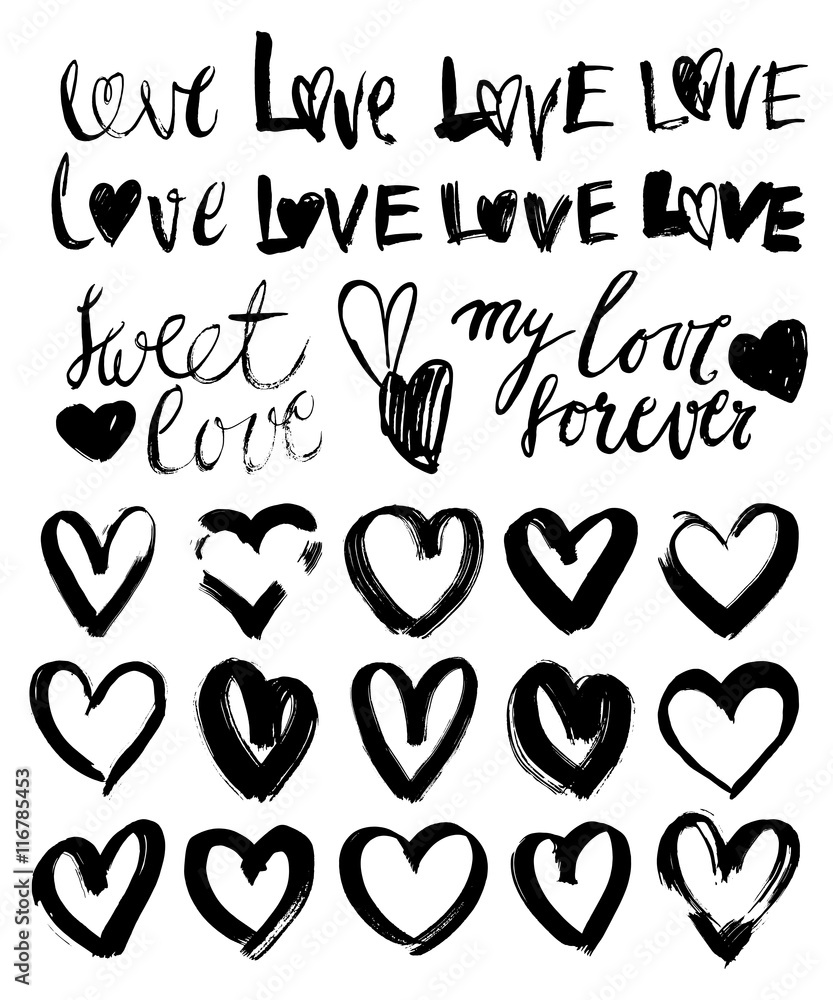 love Love LOVE LOVE
Love LOVE LOVE LOVE
Sweet my love
love forever
Adobe Stock | #116785453